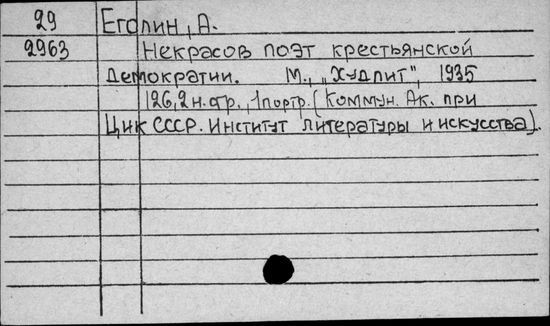 29 Еголин, А.
2963 Некрасов поэт крестьянской
Демократии. М., „Худлит", 1935
126,2 н. стр., 1 портр. (Коммун. Ак. при
Цик СССР. Институт литературы и искусства).